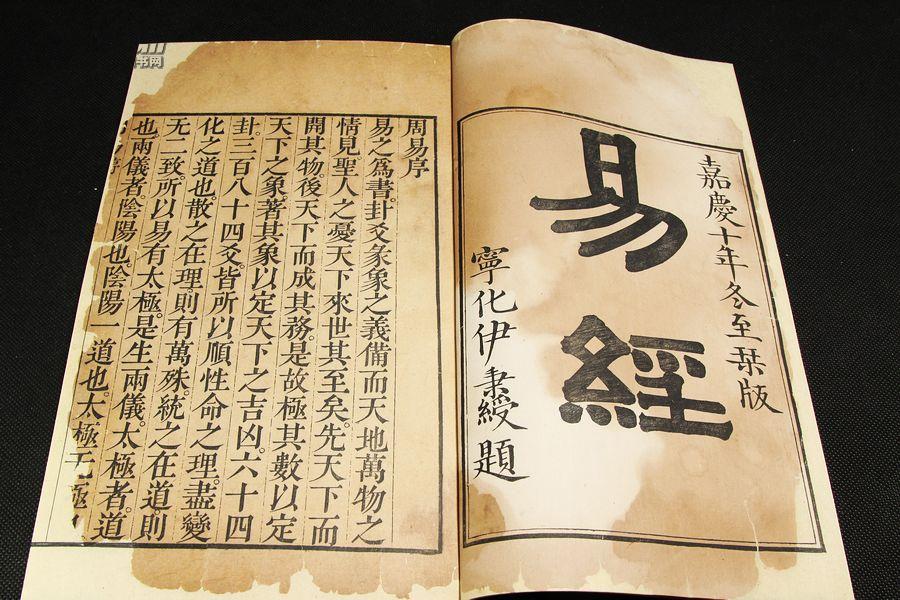 嘉慶十年冬至栞版
易經
寧化伊秉綬題
周易序
易之爲書。卦爻彖象之義備而天地萬物之
情見。聖人之憂天下來世其至矣。先天下而
開其物。後天下而成其務。是故極其數以定
天下之象。著其象以定天下之吉凶。六十四
卦。三百八十四爻。皆所以順性命之理。盡變
化之道也。散之在理。則有萬殊。統之在道。則
无二致。所以易有太極。是生兩儀。太極者。道
也。兩儀者。陰陽也。陰陽一道也。太極无極
书网